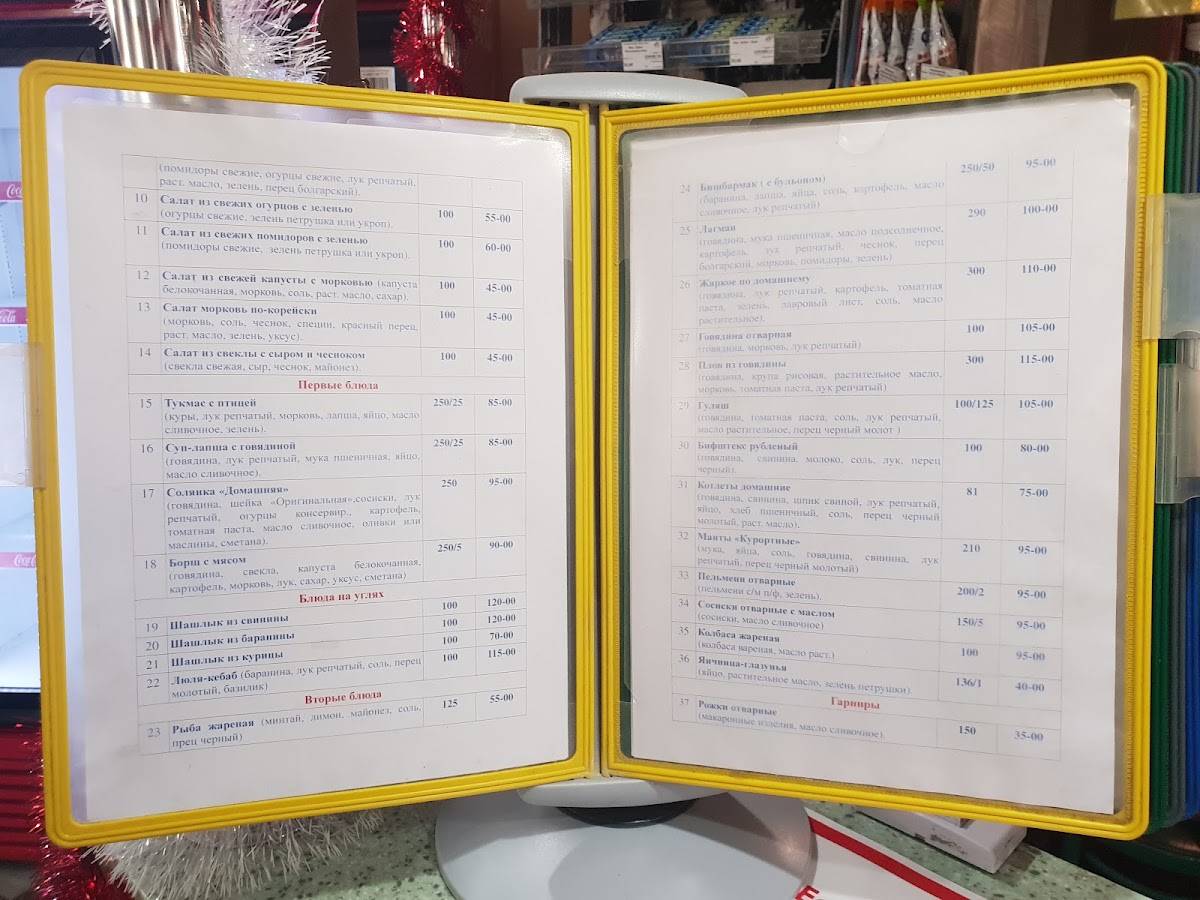 (помидоры свежие, огурцы свежие, лук репчатый,
раст. масло, зелень, перец болгарский).
10 Салат из свежих огурцов с зеленью
(огурцы свежие, зелень петрушка или укроп). 100 55-00
11 Салат из свежих помидоров с зеленью
(помидоры свежие, зелень петрушка или укроп). 100 60-00
12 Салат из свежей капусты с морковью (капуста
белокочанная, морковь, соль, раст. масло, сахар). 100 45-00
13 Салат морковь по-корейски 100 45-00
(морковь, соль, чеснок, специи, красный перец,
раст. масло, зелень, уксус).
14 Салат из свеклы с сыром и чесноком 100 45-00
(свекла свежая, сыр, чеснок, майонез).
Первые блюда
15 Тукмас с птицей 250/25 85-00
(куры, лук репчатый, морковь, лапша, яйцо, масло
сливочное, зелень).
16 Суп-лапша с говядиной 250/25 85-00
(говядина, лук репчатый, мука пшеничная, яйцо,
масло сливочное).
17 Солянка «Домашняя» 250 95-00
(говядина, шейка «Оригинальная»,сосиски, лук
репчатый, огурцы консервир., картофель,
томатная паста, масло сливочное, оливки или
маслины, сметана).
18 Борщ с мясом 250/5 90-00
(говядина, свекла, капуста белокочанная,
картофель, морковь, лук, сахар, уксус, сметана)
Блюда на углях
19 Шашлык из свинины 100 120-00
20 Шашлык из баранины 100 120-00
21 Шашлык из курицы 100 70-00
22 Люля-кебаб (баранина, лук репчатый, соль, перец 100 115-00
молотый, базилик)
Вторые блюда
23 Рыба жареная (минтай, лимон, майонез, соль, 125 55-00
прец черный)
24 Бишбармак ( с бульоном) 250/50 95-00
(баранина, лапша, яйца, соль, картофель, масло
сливочное, лук репчатый)
25 Лагман 290 100-00
(говядина, мука пшеничная, масло подсолнечное,
картофель, лук репчатый, чеснок, перец
болгарский, морковь, помидоры, зелень)
26 Жаркое по домашнему 300 110-00
(говядина, лук репчатый, картофель, томатная
паста, зелень, лавровый лист, соль, масло
растительное).
27 Говядина отварная 100 105-00
(говядина, морковь, лук репчатый)
28 Плов из говядины 300 115-00
(говядина, крупа рисовая, растительное масло,
морковь, томатная паста, лук репчатый)
29 Гуляш 100/125 105-00
(говядина, томатная паста, соль, лук репчатый,
масло растительное, перец черный молот )
30 Бифштекс рубленый 100 80-00
(говядина, свинина, молоко, соль, лук, перец
черный).
31 Котлеты домашние 81 75-00
(говядина, свинина, шпик свиной, лук репчатый,
яйцо, хлеб пшеничный, соль, перец черный
молотый, раст. масло).
32 Манты «Курортные» 210 95-00
(мука, яйца, соль, говядина, свинина, лук
репчатый, перец черный молотый)
33 Пельмени отварные 200/2 95-00
(пельмени с/м п/ф, зелень).
34 Сосиски отварные с маслом 150/5 95-00
(сосиски, масло сливочное)
35 Колбаса жареная 100 95-00
(колбаса вареная, масло раст.)
36 Яичница-глазунья 136/1 40-00
(яйцо, растительное масло, зелень петрушки)
Гарниры
37 Рожки отварные 150 35-00
(макаронные изделия, масло сливочное).